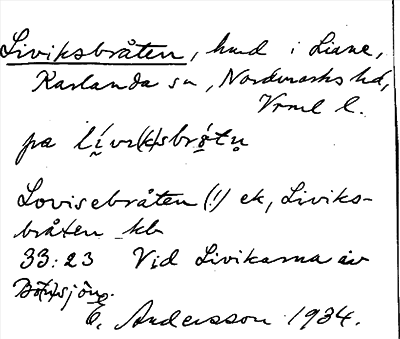 Liviksbråten, hmd i Liane,
Karlanda sn, Nordmarks hd,
Vrml l.
på lívi(k)sbró̀tn̥
Lovisebråten (!) ek, Liviks-
bråten kb
33:23 Vid Livikarna av
E. Andersson 1934.